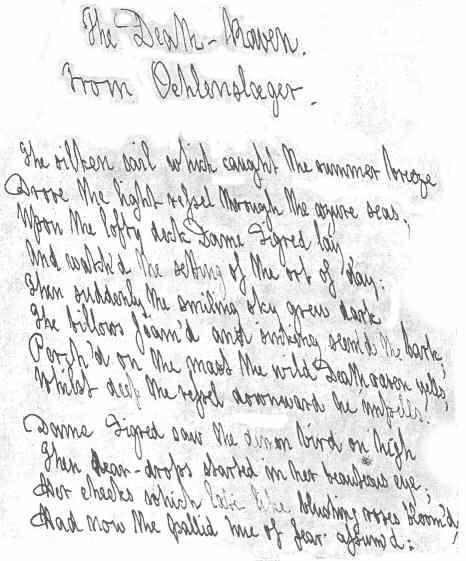 The Death-Raven.
From Oehlenslæger.
The silken sail which caught the summer breeze
Drove the light vessel through the azure seas;
Upon the lofty deck Dame Sigred lay
And watch'd the setting of the orb of day:
Then suddenly the smiling sky grew dark
The billows foam'd and sinking seem'd the bark;
Perch'd on the mast the wild Death-raven yells,
Whilst deep the vessel downward he impells!
Dame Sigred saw the demon bird on high
Then tear-drops started in her beauteous eye;
Her cheeks which like blushing roses bloom'd,
Had now the pallid hue of fear assum'd: